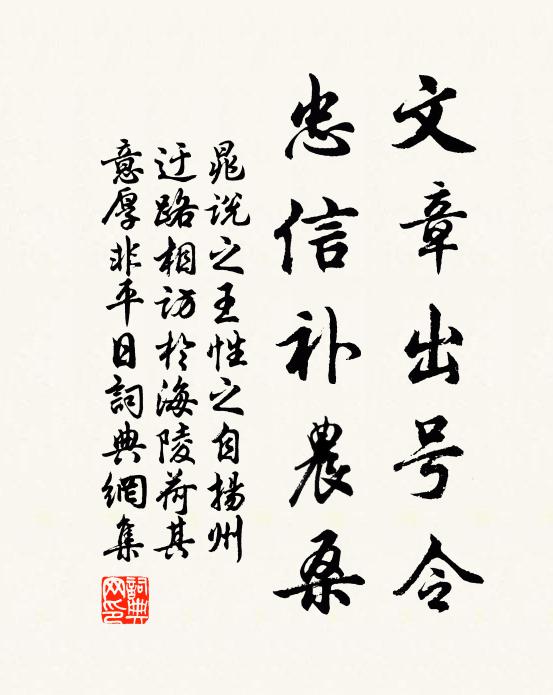 文章出号令
忠信补農桑
晁说之王性之自揚州
迂路相访於海陵荷其
意厚非平日詞典網集
詞典網印